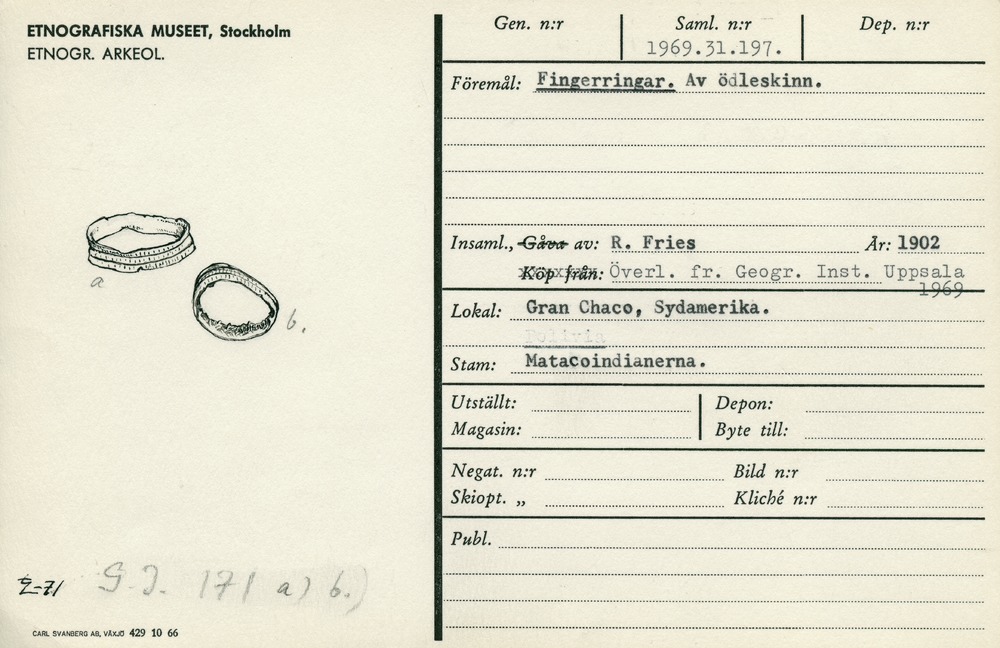 ETNOGRAFISKA MUSEET, Stockholm
ETNOGR. ARKEOL.
a
b.
S. J. 171 a) b.)
CARL SVANBERG AB, VÄXJÖ 429 10 66
Gen. n:r
Saml. n:r
1969.31.197.
Dep. n:r
Föremål: Fingerringar. Av ödleskinn.
Insaml., Gåva av: R. Fries År: 1902
Köp från: Överl. fr. Geogr. Inst. Uppsala
1969
Lokal: Gran Chaco, Sydamerika.
Bolivia
Stam: Matacoindianerna.
Utställt: Depon:
Magasin: Byte till:
Negat. n:r Bild n:r
Skiopt. „ Kliché n:r
Publ.